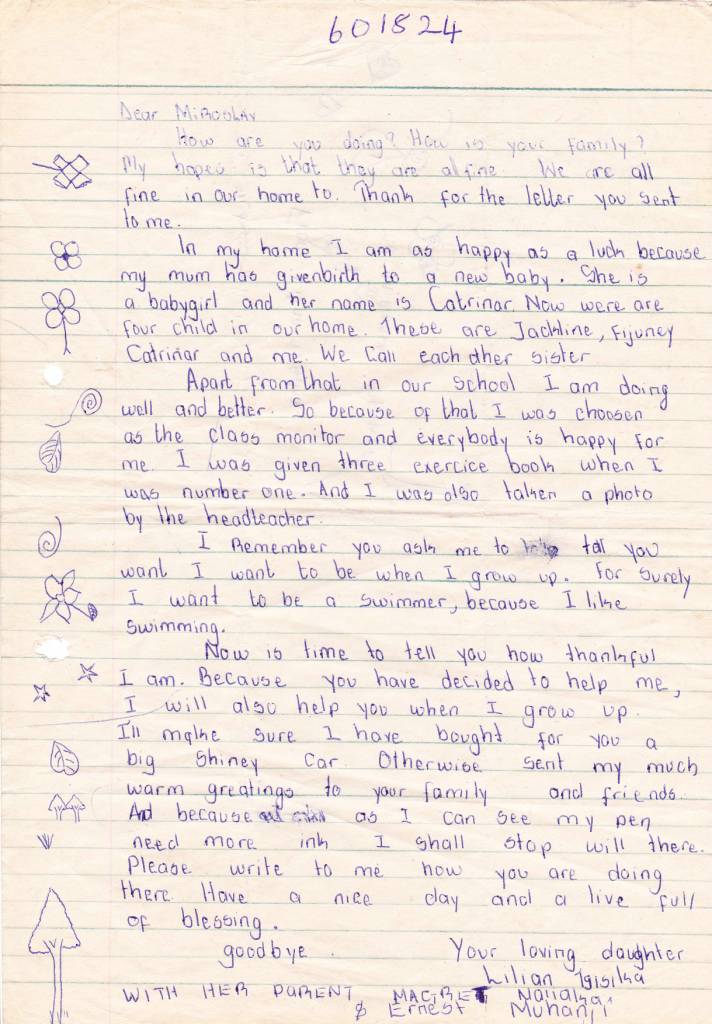 601824
Dear Miroslav
How are you doing? How is your family?
My hopes is that they are al fine We are all
fine in our home to. Thank for the letter you sent
to me.
In my home I am as happy as a luck because
my mum has givenbirth to a new baby. She is
a babygirl and her name is Catrinar. Now were are
four child in our home. These are Jackline, Fijuney
Catrinar and me. We Call each other sister
Apart from that in our school I am doing
well and better. So because of that I was choosen
as the class monitor and everybody is happy for
me. I was given three exercice book when I
was number one. And I was also taken a photo
by the headteacher.
I Remember you ask me to tall you
want I want to be when I grow up. For surely
I want to be a swimmer, because I like
swimming.
Now is time to tell you how thankful
I am. Because you have decided to help me,
I will also help you when I grow up.
I'll make sure I have bought for you a
big Shiney Car. Otherwise sent my much
warm greatings to your family and friends.
And because as I can see my pen
need more ink I shall stop will there.
Please write to me how you are doing
there. Have a nice day and a live full
of blessing.
goodbye. Your loving daughter
Lilian Igisika
WITH HER PARENT MAGRET
& Ernest Muhanji